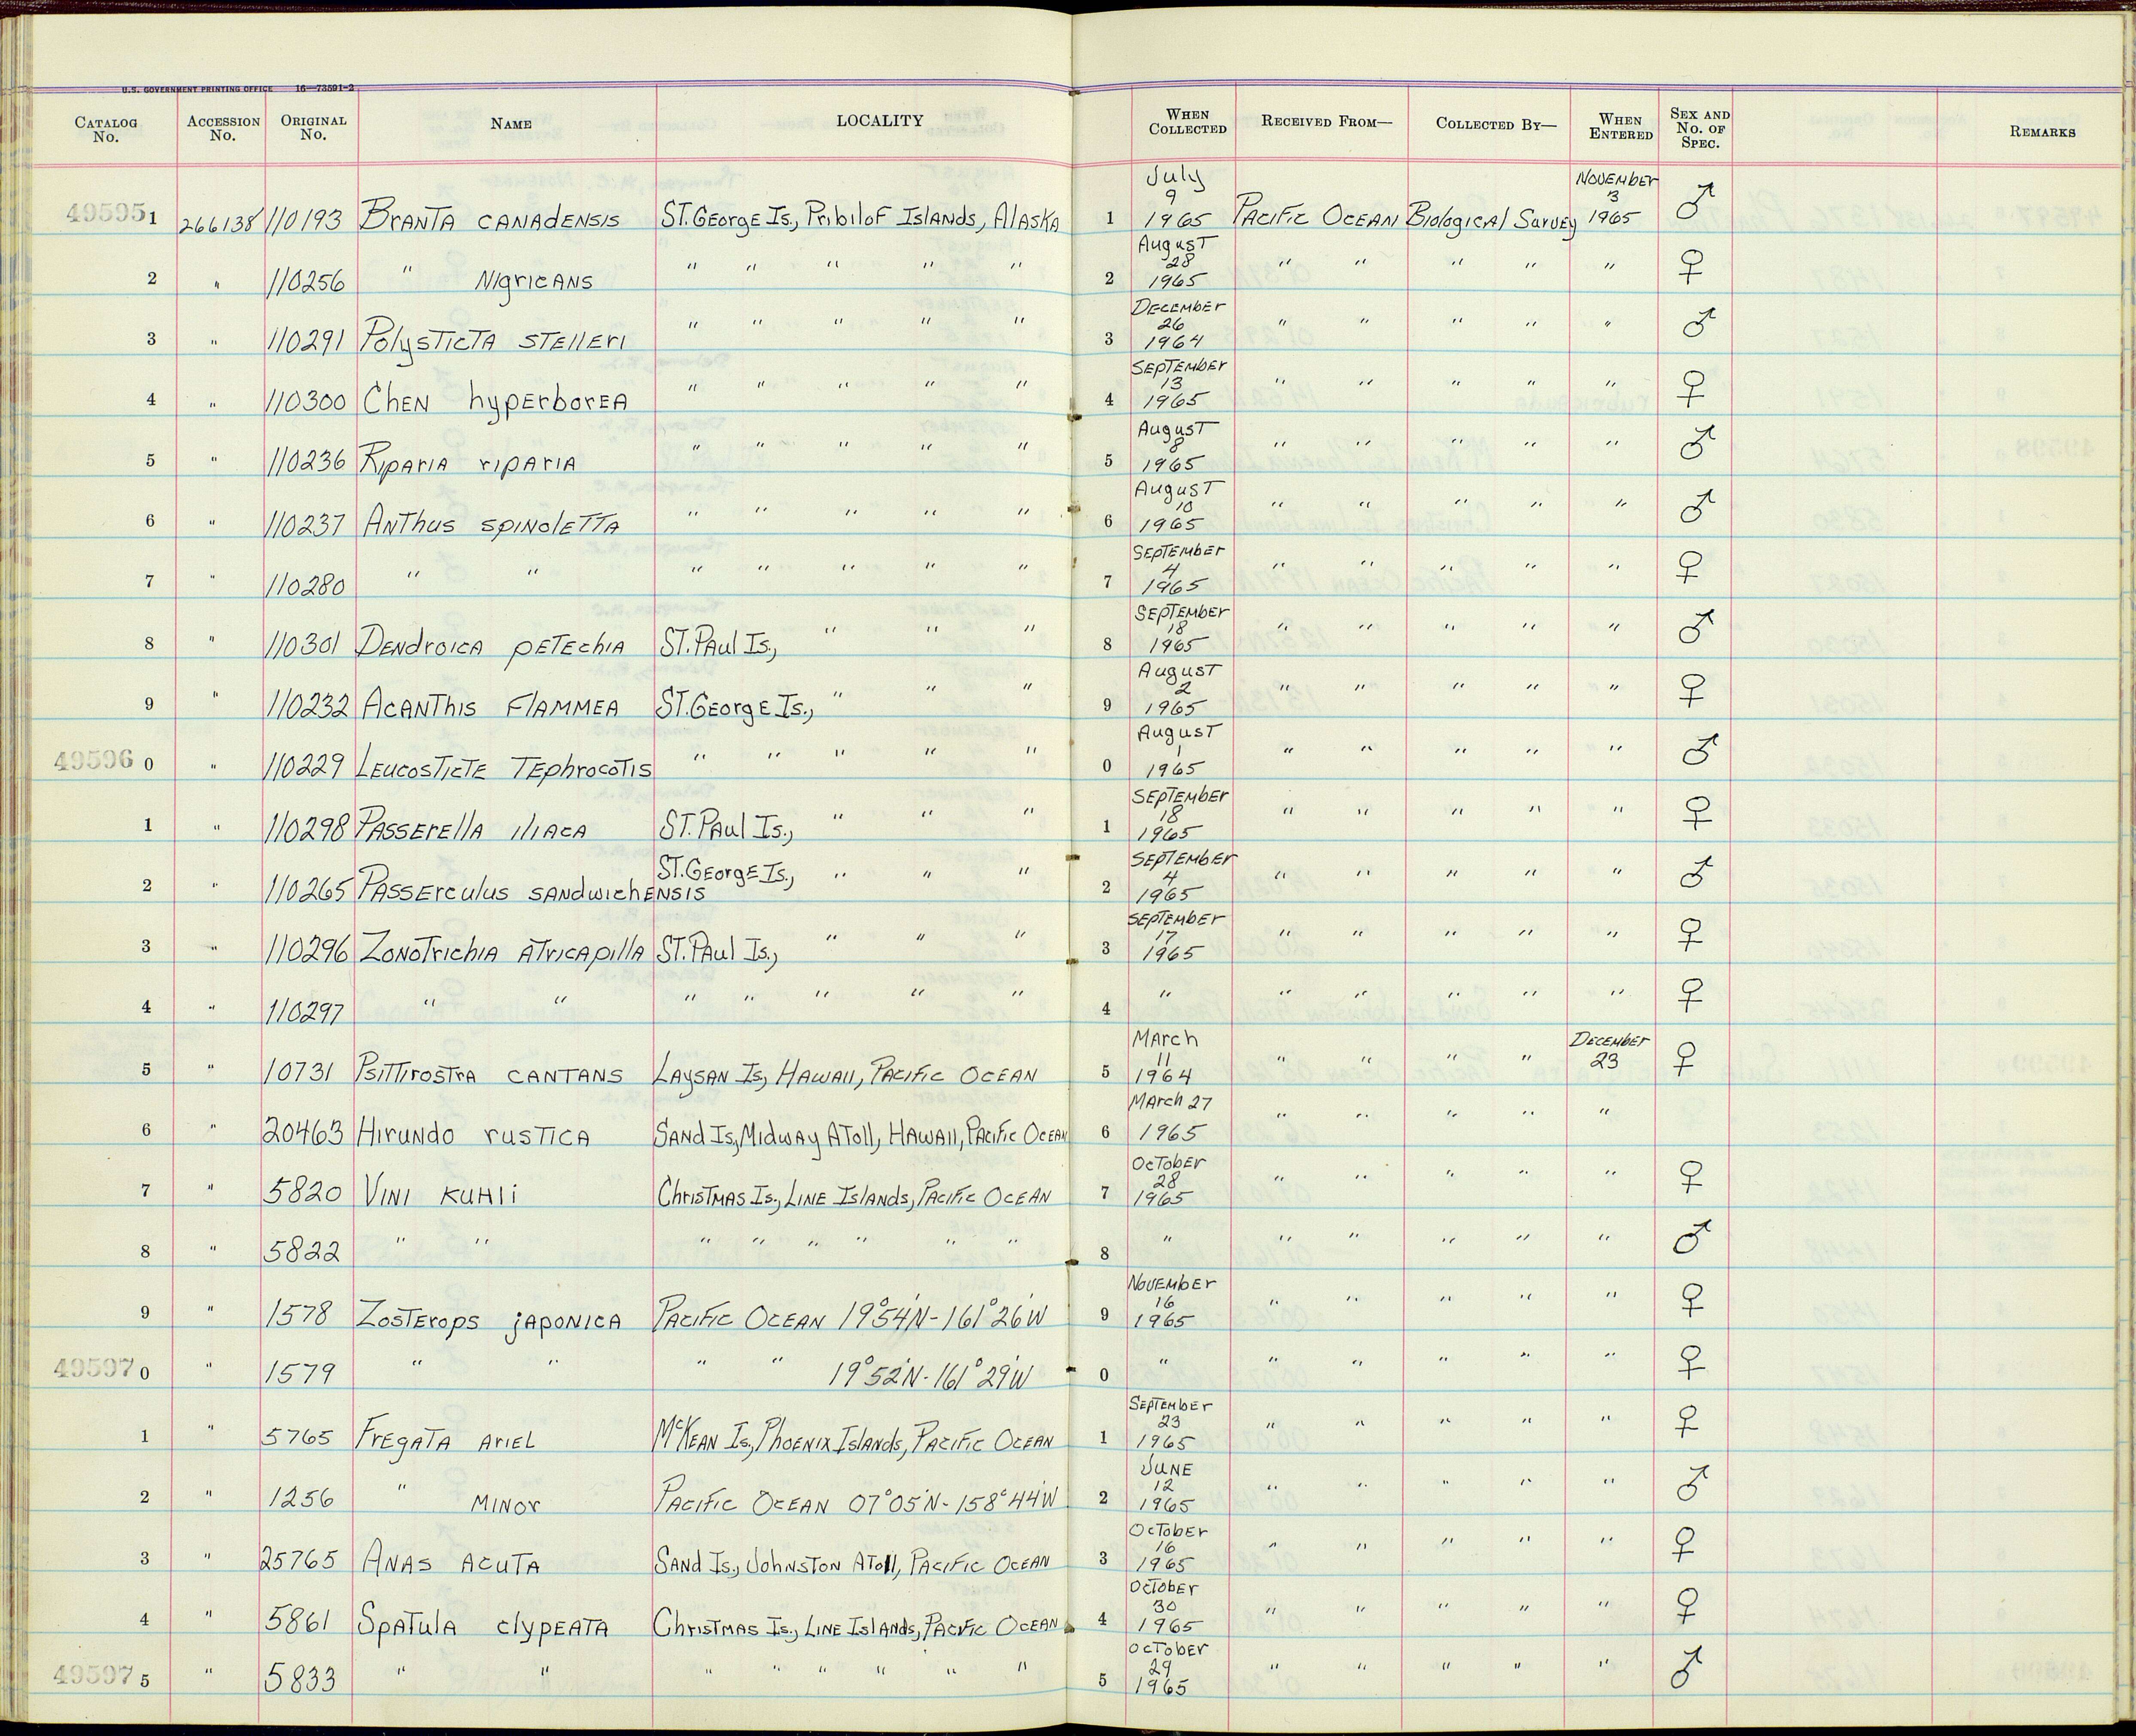 U.S. GOVERNMENT PRINTING OFFICE 16—73591-2
CATALOG No. ACCESSION No. ORIGINAL No. NAME LOCALITY WHEN COLLECTED RECEIVED FROM— COLLECTED BY— WHEN ENTERED SEX AND No. OF SPEC. REMARKS
495951 266138 110193 Branta canadensis St. George Is., Pribilof Islands, Alaska 1 July 9 1965 Pacific Ocean Biological Survey November 3 1965 ♂
2 " 110256 " nigricans " " " " " 2 August 28 1965 " " " " " ♀
3 " 110291 Polysticta stelleri " " " " " 3 December 26 1964 " " " " " ♂
4 " 110300 Chen hyperborea " " " " " 4 September 13 1965 " " " " " ♀
5 " 110236 Riparia riparia " " " " " 5 August 8 1965 " " " " " ♂
6 " 110237 Anthus spinoletta " " " " " 6 August 10 1965 " " " " " ♂
7 " 110280 " " " " " " " 7 September 4 1965 " " " " " ♀
8 " 110301 Dendroica petechia St. Paul Is., " " " 8 September 18 1965 " " " " " ♂
9 " 110232 Acanthis flammea St. George Is., " " " 9 August 2 1965 " " " " " ♀
49596 0 " 110229 Leucosticte tephrocotis " " " " " 0 August 1 1965 " " " " " ♂
1 " 110298 Passerella iliaca St. Paul Is., " " " 1 September 18 1965 " " " " " ♀
2 " 110265 Passerculus sandwichensis St. George Is., " " " 2 September 4 1965 " " " " " ♂
3 " 110296 Zonotrichia atricapilla St. Paul Is., " " " 3 September 17 1965 " " " " " ♀
4 " 110297 " " " " " " " 4 " " " " " " ♀
5 " 10731 Psittirostra cantans Laysan Is., Hawaii, Pacific Ocean 5 March 11 1964 " " " " December 23 ♀
6 " 20463 Hirundo rustica Sand Is., Midway Atoll, Hawaii, Pacific Ocean 6 March 27 1965 " " " " "
7 " 5820 Vini kuhli Christmas Is., Line Islands, Pacific Ocean 7 October 28 1965 " " " " " ♀
8 " 5822 " " " " " " " " 8 " " " " " " ♂
9 " 1578 Zosterops japonica Pacific Ocean 19°54'N-161°26'W 9 November 16 1965 " " " " " ♀
49597 0 " 1579 " " " " 19°52'N-161°29'W 0 " " " " " " ♀
1 " 5765 Fregata ariel McKean Is., Phoenix Islands, Pacific Ocean 1 September 23 1965 " " " " " ♀
2 " 1256 " minor Pacific Ocean 07°05'N-158°44'W 2 June 12 1965 " " " " " ♂
3 " 25765 Anas acuta Sand Is., Johnston Atoll, Pacific Ocean 3 October 16 1965 " " " " " ♀
4 " 5861 Spatula clypeata Christmas Is., Line Islands, Pacific Ocean 4 October 30 1965 " " " " " ♀
49597 5 " 5833 " " " " " " " " 5 October 29 1965 " " " " " ♂